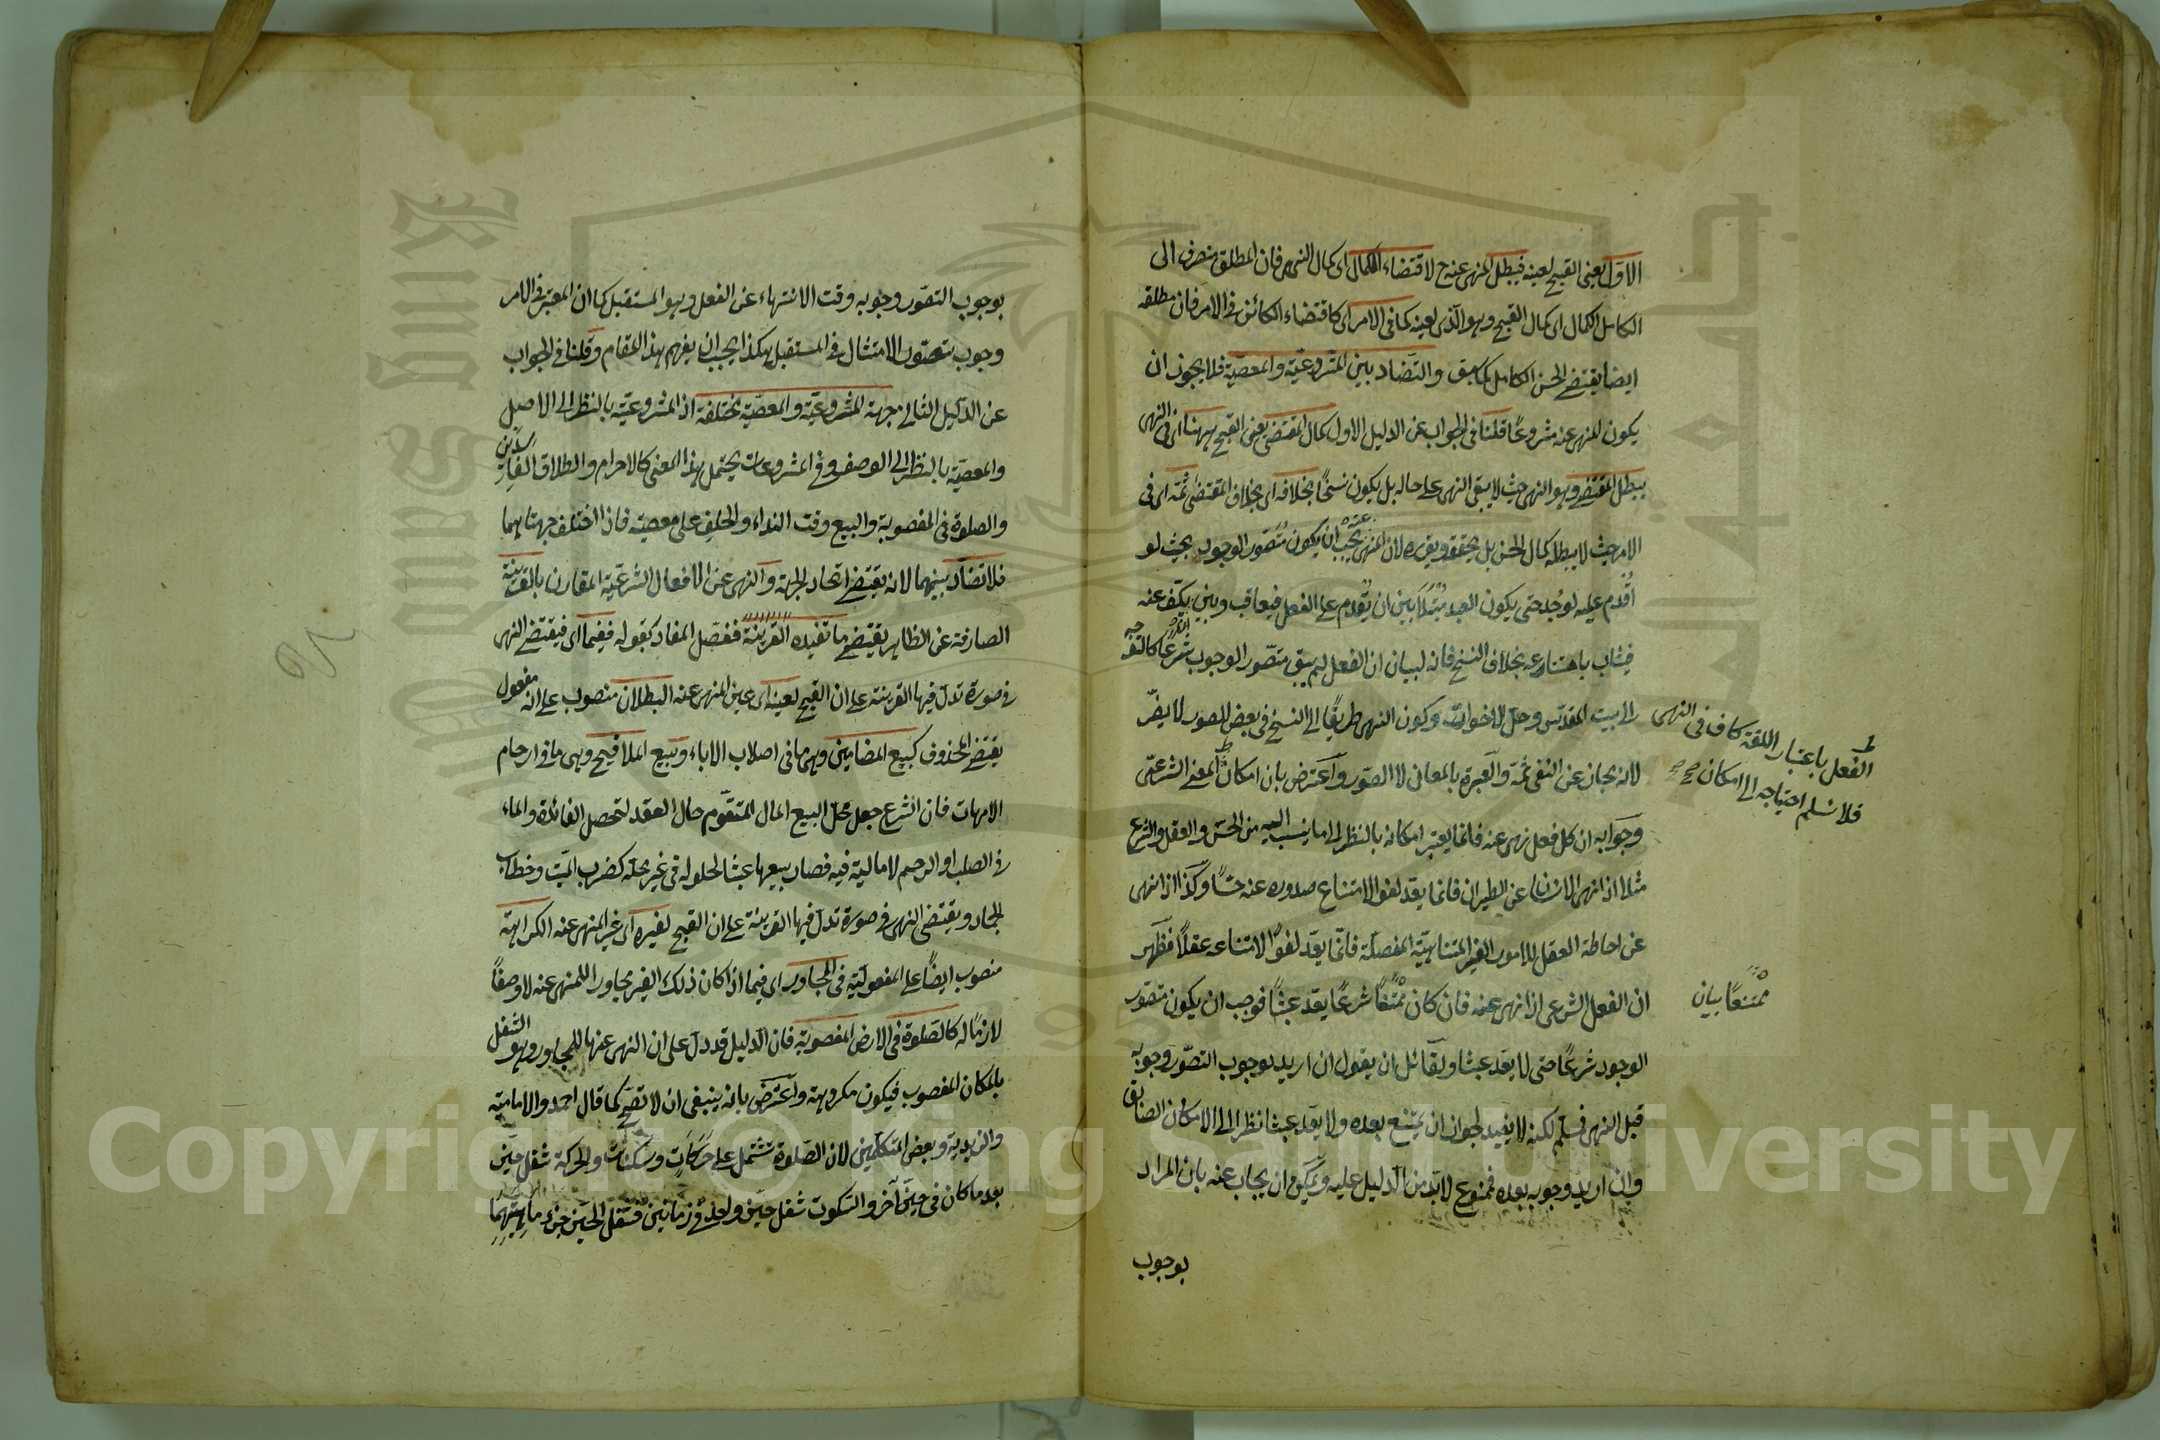 الاول يعنى القبح لعينه فيبطل المنهى عنه ح لاقتضاء الكمال اى كمال النهى فان المطلق منصرف الى
الكامل الكمال اى كمال القبح وهو الذى لعينه كما فى الامر اى كاقتضاء الكائن فى الامر فان مطلقه
ايضا يقتضى الحسن الكامل كما سبق والتضاد بين المشروعية والمعصية فلا يجوز ان
يكون المنهى عنه مشروعًا قلنا فى الجواب عن الدليل الاول كمال المقتضى يعنى القبح ههنا اى فى النهى
يبطل المقتضى وهو النهى حيث لا يبقى النهى على حاله بل يكون نسخًا بخلافه اى بخلاف المقتضى ثمه اى فى
الامر حيث لا يبطله كمال الحسن بل يحققه ويقرره لان المنهى عنه يجب ان يكون متصور الوجود بحيث لو
اقدم عليه لوجد حتى يكون العبد مبتلًا بين ان يقدم على الفعل فيعاقب وبين يكف عنه
فيثاب بامتناعه بخلاف النسخ فانه لبيان ان الفعل لم يبق متصور الوجود شرعًا كالتوجه
الى بيت المقدس وحل الاخوات وكون النهى طريقًا الى النسخ فى بعض الصور لا يضر
لانه مجاز عن النفى ثمة والعبرة بالمعانى لا الصور واعترض بان امكان المعنى الشرعى
الفعل باعتبار اللغة كاف فى النهى
فلا نسلم احتياجه الى امكان صح
وجوابه ان كل فعل نهى عنه فانما يعتبر امكانه بالنظر الى ما ينسب اليه من الحس والعقل والشرع
مثلا اذا نهى الانسان عن الطيران فانما يعد لغوا لامتناع صدوره عنه حسًا وكذا اذا نهى
عن احاطة العقل للامور الغير المتناهية المفصلة فانما يعد لغوًا لامتناعه عقلًا فظهر
ان الفعل الشرعى اذا نهى عنه فان كان ممتنعًا شرعًا يعد عبثًا فوجب ان يكون متصور
ممتنعًا بيان
الوجود شرعًا حتى لا يعد عبثا ولقائل ان يقول ان اريد بوجوب التصور وجوبه
قبل النهى فمسلم لكنه لا يفيد لجواز ان يمتنع بعده ولا يعد عبثا نظرا الى الامكان السابق
وان اريد وجوبه بعده فممنوع لابد من الدليل عليه ويمكن ان يجاب عنه بان المراد
بوجوب
بوجوب التصور وجوبه وقت الانتهاء عن الفعل وهو المستقبل كما ان المعتبر فى الامر
وجوب تصور الامتثال فى المستقبل هكذا يجب ان يفهم هذا المقام وقلنا فى الجواب
عن الدليل الثانى جهة المشروعية والمعصية مختلفة اذ المشروعية بالنظر الى الاصل
والمعصية بالنظر الى الوصف وفى المشروعات يحتمل هذا المعنى كالاحرام والطلاق الفاسدين
والصلوة فى المغصوبة والبيع وقت النداء والحلف على معصية فاذا اختلف جهتاهما
فلا تضاد بينهما لانه يقتضى اتحاد الجهة والنهى عن الافعال الشرعية المقارن بالقرينة
الصارفة عن الظاهر يقتضى ما تفيده القرينة ففصل المفاد بقوله ففيما اى فيقتضى النهى
فى صورة تدل فيها القرينة على ان القبح لعينه اى عين المنهى عنه البطلان منصوب على انه مفعول
يقتضى المحذوف كبيع المضامين وهى ما فى اصلاب الاباء وبيع الملاقيح وهى ما فى ارحام
الامهات فان الشرع جعل محل البيع المال المتقوم حال العقد لتحصل الفائدة والماء
فى الصلب او الرحم لا مالية فيه فصار بيعها عبثا لحلوله فى غير محله كضرب الميت وخطاب
الجماد ويقتضى النهى فى صورة تدل فيها القرينة على ان القبح لغيره اى غير المنهى عنه الكراهة
منصوب ايضًا على المفعولية فى المجاور اى فيما اذا كان ذلك الغير مجاورا للمنهى عنه لا وصفًا
لازمًا له كالصلوة فى الارض المغصوبة فان الدليل قد دل على ان النهى عنها للمجاور وهو الشغل
بالمكان المغصوب فيكون مكروهة واعترض بانه ينبغى ان لا تصح كما قال احمد والامامية
والزيدية وبعض المتكلمين لان الصلوة تشتمل على حركات وسكنات والحركة شغل حيز
بعد ما كان فى حيز آخر والسكون شغل حيز واحد فى زمانين فشغل الحيز جزء ماهيتهما